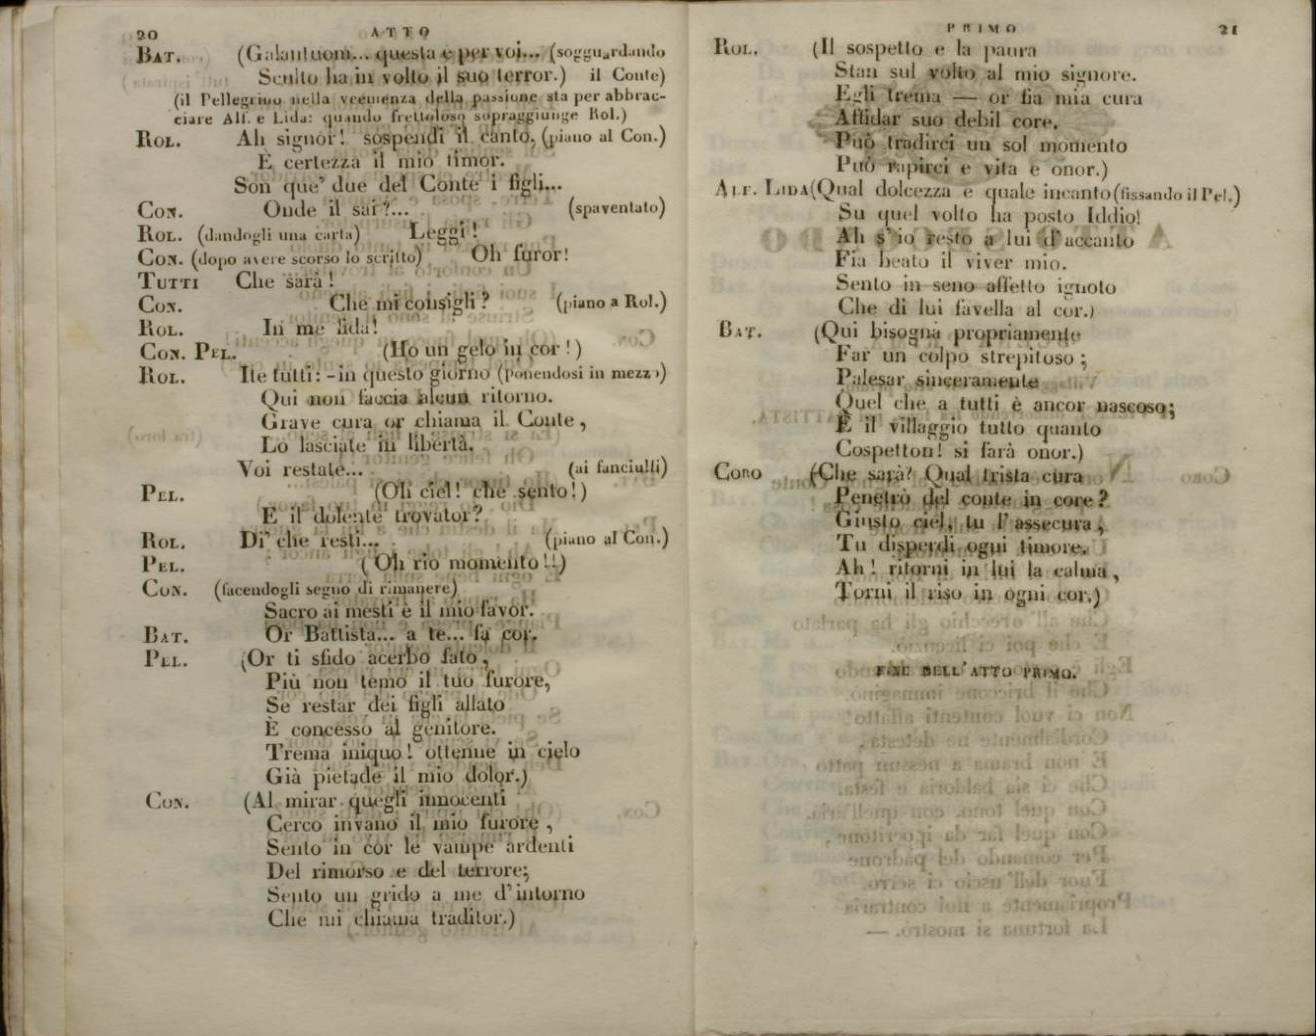 20 ATTO
BAT. (Galantuom... questa è per voi... (sogguardando
Sculto ha in volto il suo terror.) il Conte)
(il Pellegrino nella veemenza della passione sta per abbrac-
ciare Alf. e Lida: quando frettoloso sopraggiunge Rol.)
ROL. Ah signor! sospendi il canto, (piano al Con.)
E certezza il mio timor.
Son que' due del Conte i figli...
CON. Onde il sai?... (spaventato)
ROL. (dandogli una carta) Leggi!
CON. (dopo avere scorso lo scritto) Oh furor!
TUTTI Che sarà!
CON. Che mi consigli? (piano a Rol.)
ROL. In me fida!
CON. PEL. (Ho un gelo in cor!)
ROL. Ite tutti: - in questo giorno (ponendosi in mezzo)
Qui non faccia alcun ritorno.
Grave cura or chiama il Conte,
Lo lasciate in libertà.
Voi restate... (ai fanciulli)
PEL. (Oh ciel! che sento!)
E il dolente trovator?
ROL. Di' che resti... (piano al Con.)
PEL. (Oh rio momento!!)
CON. (facendogli segno di rimanere)
Sacro ai mesti è il mio favor.
BAT. Or Battista... a te... fa cor.
PEL. (Or ti sfido acerbo fato,
Più non temo il tuo furore,
Se restar dei figli allato
È concesso al genitore.
Trema iniquo! ottenne in cielo
Già pietade il mio dolor.)
CON. (Al mirar quegli innocenti
Cerco invano il mio furore,
Sento in cor le vampe ardenti
Del rimorso e del terrore;
Sento un grido a me d'intorno
Che mi chiama traditor.)
PRIMO 21
ROL. (Il sospetto e la paura
Stan sul volto al mio signore.
Egli trema — or fia mia cura
Affidar suo debil core.
Può tradirci un sol momento
Può rapirci e vita e onor.)
ALF. LIDA (Qual dolcezza e quale incanto (fissando il Pel.)
Su quel volto ha posto Iddio!
Ah s'io resto a lui d'accanto
Fia beato il viver mio.
Sento in seno affetto ignoto
Che di lui favella al cor.)
BAT. (Qui bisogna propriamente
Far un colpo strepitoso;
Palesar sinceramente
Quel che a tutti è ancor nascoso;
E il villaggio tutto quanto
Cospetton! si farà onor.)
CORO (Che sarà? Qual trista cura
Penetrò del conte in core?
Giusto ciel, tu l'assecura,
Tu disperdi ogni timore.
Ah! ritorni in lui la calma,
Torni il riso in ogni cor.)
FINE DELL'ATTO PRIMO.